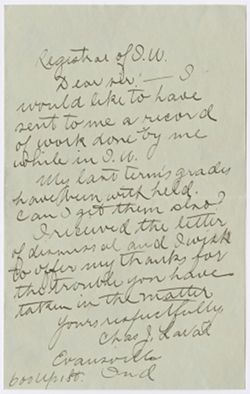 Registrar of I.U.
Dear sir:— I
would like to have
sent to me a record
of work done by me
while in I.U.
My last term's grades
have been with held.
Can I get them also?
I received the letter
of dismissal and I wish
to offer my thanks for
the trouble you have
taken in the matter
Yours respectfully
Chas J.
Evansville
Ind
600 Up 1st.